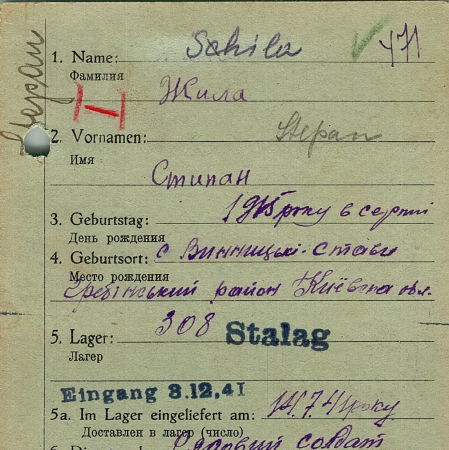 Stepan
1. Name: Schila 471
Фамилия
Жила
2. Vornamen: Stepan
Имя
Стипан
3. Geburtstag: 1915 року в серпні
День рождения
4. Geburtsort: с Винницькі-Стави
Место рождения
район Киевска обл.
5. Lager: 308 Stalag
Лагер
Eingang 3.12.41
5a. Im Lager eingeliefert am: 14.7.41 року
Доставлен в лагер (число)
Рядовий солдат